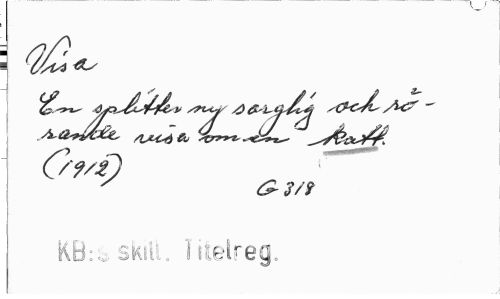 Visa
En splitter ny sorglig och rö-
rande visa om en katt.
(1912)
G 318
KB:s skill. Titelreg.